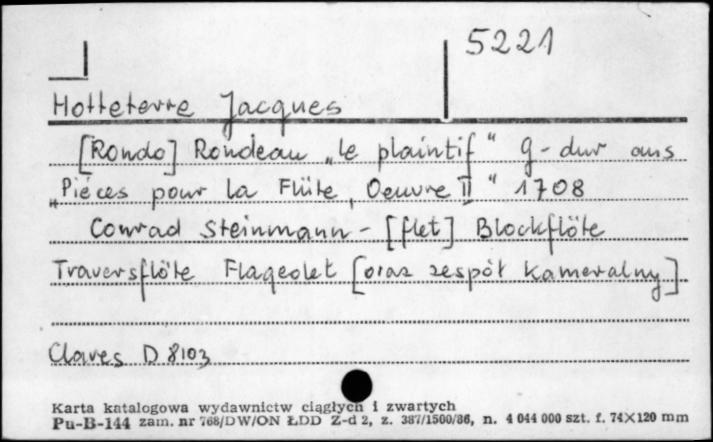 5221
Hotteterre Jacques
[Rondo] Rondeau „le plaintif" g-dur aus
„Piéces pour la Flüte, Oeuvre II" 1708
Conrad Steinmann - [flet] Blockflöte
Traversflöte Flageolet [oraz zespół kameralny]
Claves D 8103
Karta katalogowa wydawnictw ciągłych i zwartych
Pu-B-144 zam. nr 768/DW/ON ŁDD Z-d 2, z. 387/1500/86, n. 4 044 000 szt. f. 74X120 mm